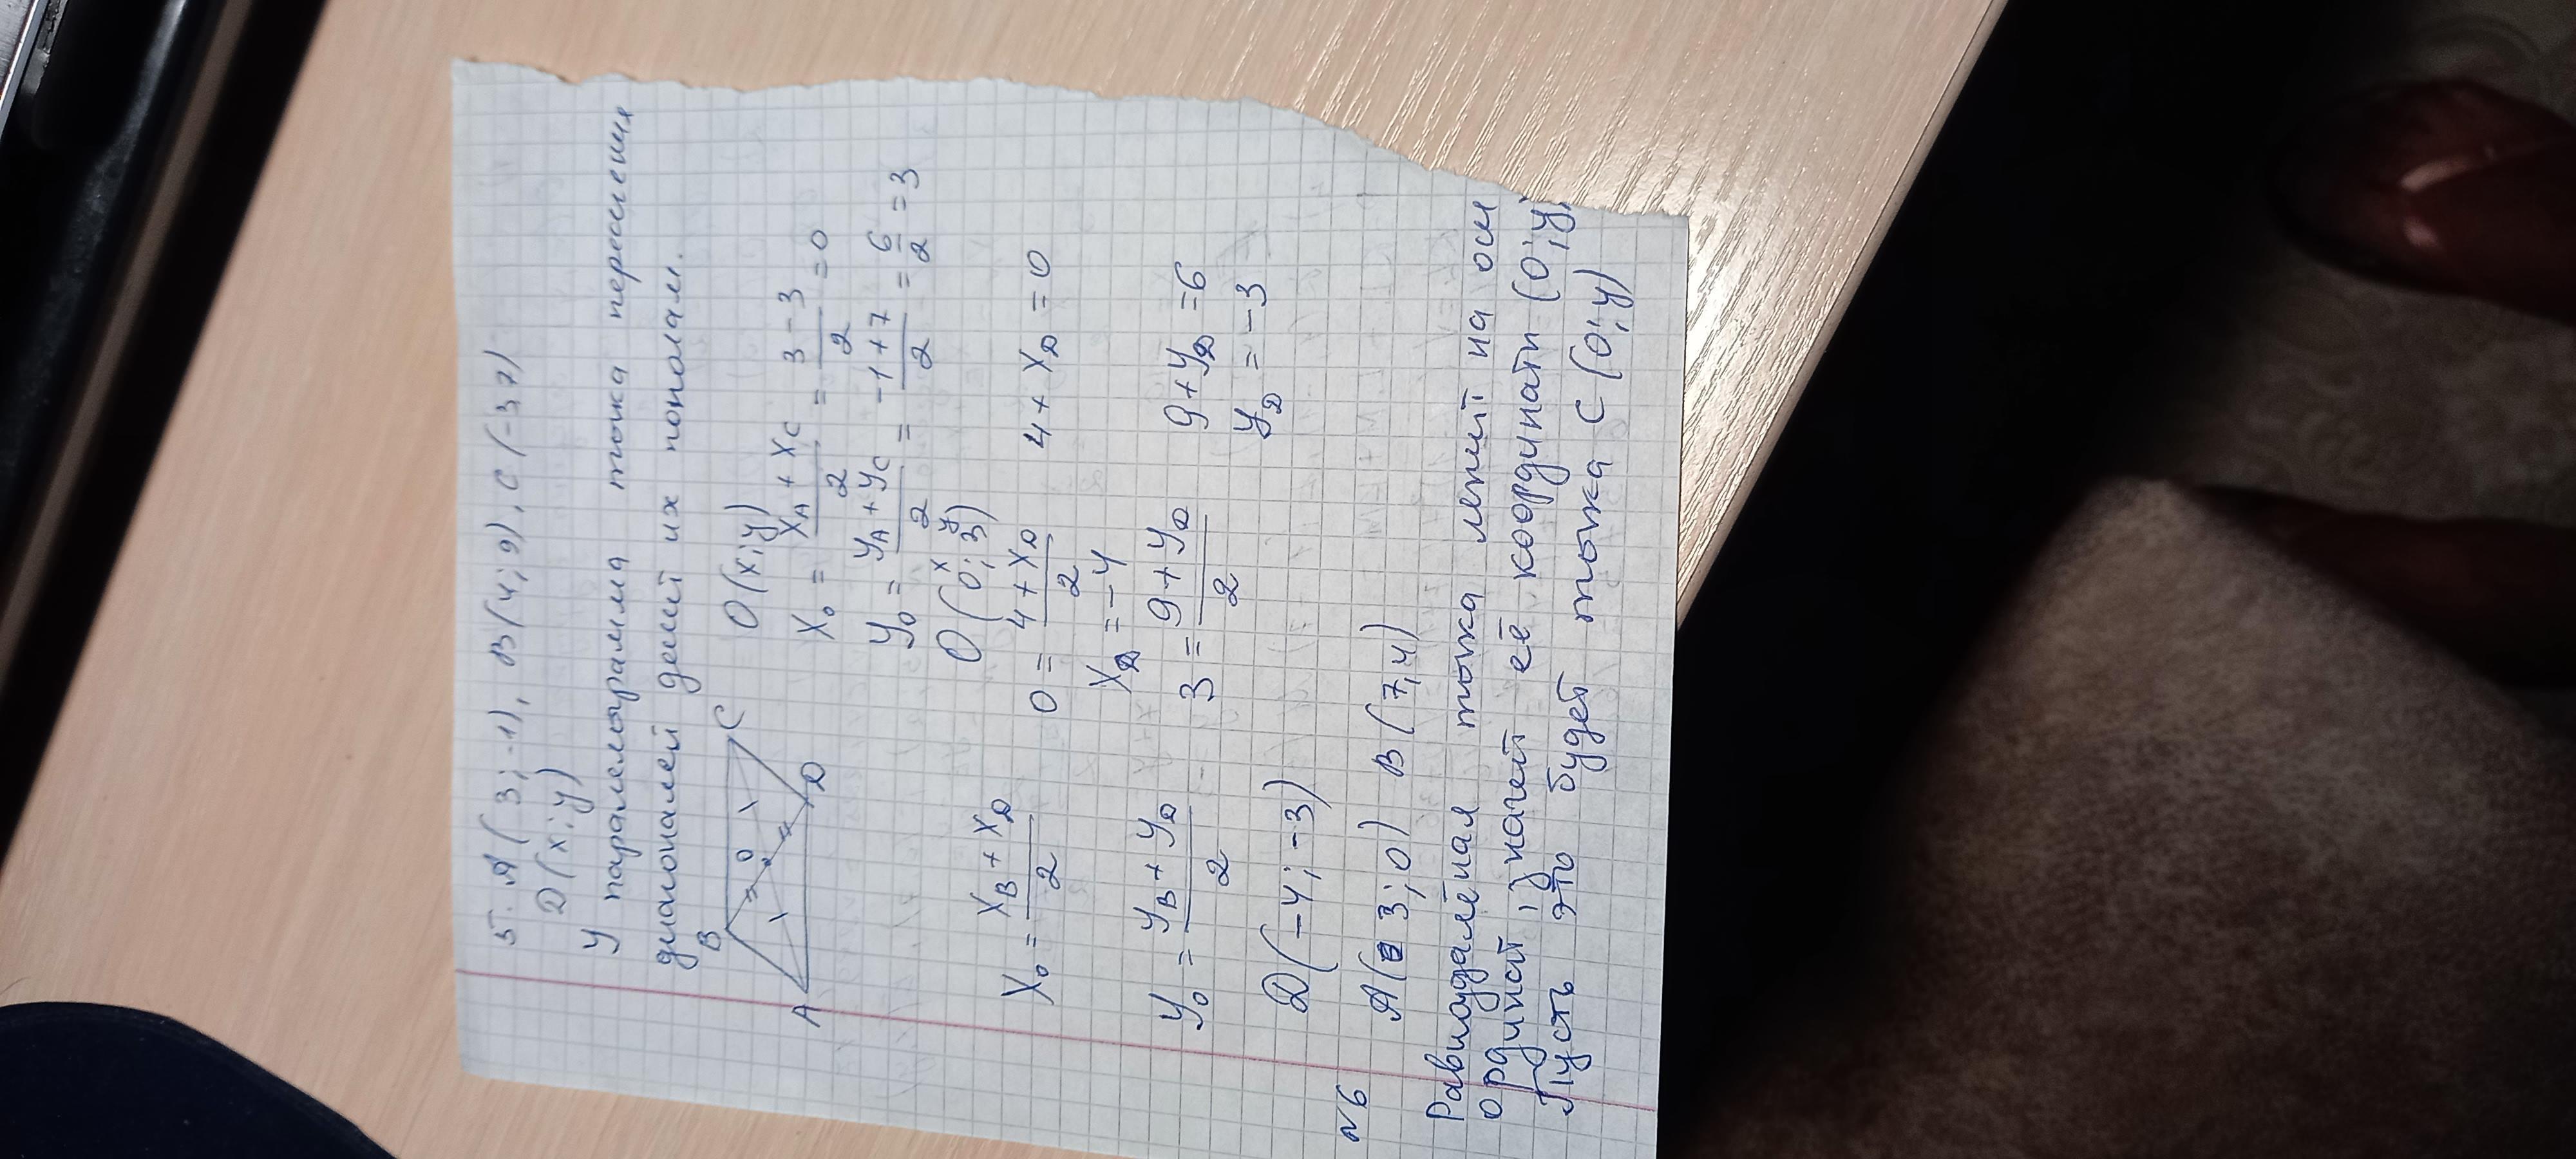 5. A(3;-1), B(4;9), C(-3,7)
D(x;y)
У паралелограмма точка пересечения
диагоналей делит их пополам.
B C
O
A D
O(x;y)
X₀ = (X_A + X_C)/2 = (3-3)/2 = 0
У₀ = (У_A + У_C)/2 = (-1+7)/2 = 6/2 = 3
x y
O(0;3)
X₀ = (X_B + X_D)/2 0 = (4+X_D)/2 4+X_D = 0
X_D = -4
У₀ = (У_B + У_D)/2 3 = (9+У_D)/2 9+У_D = 6
У_D = -3
D(-4;-3)
№6 A(3;0) B(7,4)
Равноудалёная точка лежит на оси
ординат, значит её координаты (0;y)
Пусть это будет точка C(0;y)